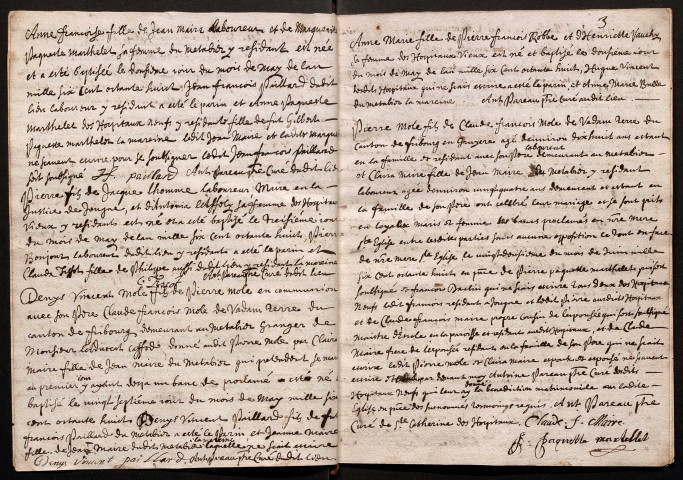 Anne francoise fille de Jean Maire Laboureur et de Marguerite
paquette Marthelet sa femme du Metabier y residant est née
et a esté baptisée le douzième iour du mois de May de lan
mille six Cent octante huict Jean françois Paillard dudit
lieu laboureur y residant a esté le parin et Anne Paquette
Marthelet des Hopitaux Neufs y residante fille de fut Gilbert
Paquette Marthelet la mareine ledit Jean Maire et
ne scavent escrire pour se soubsigner ledit Jean françois Paillard
soit soubsigné JF. paillard Ant Pareau ptre Curé dudit lieu
Pierre fils de Jacque Lhomme Laboureur Maire en la
Justice de Jougne et d'Antonia sa femme des Hopitaux
Vieux y residants est né et a esté baptisé le Treizième iour
du mois de May de lan mille six Cent octante huict, Pierre
Bonjour laboureur dudit lieu y residant a esté le parin et
Claude fille de Philippe aussi dudit lieu y residant la mareine
Ant Pareau ptre Curé dudit lieu
Denys Vincent Mole fils de Pierre Mole en communion
avec son Père Claude françois Mole de Vadans Terre du
Canton de fribourg demeurant au Metabier Granger de
Monsieur donné audit Pierre Mole par Claire
Maire fille de Jean Maire du Metabier qui pretendent se marier
au premier iour y ayant deja un banc de proclamé a esté né
baptisé le vingt septième iour du mois de May mille six
cent octante huict Denys Vincent Paillard fils de fut
françois Paillard du Metabier a esté le Parin et Jeanne Maire
fille de Jean Maire dudit Metabier la mareine laquelle ne scait escrire
Denys Vincent paillard. Ant Pareau ptre Curé dudit lieu
3
Anne Marie fille de Pierre françois Robbe et d'Henriette Vauchy
sa femme des Hopitaux Vieux est né et baptisé le douzième iour
du mois de May de lan mille six Cent octante huict, Hugue Vincent
desdits Hopitaux qui ne scais escrire a esté le parin et Anne Marie Bulle
du Metabier la mareine. Ant Pareau ptre Curé audit lieu.
Pierre Mole fils de Claude françois Mole de Vadans Terre du
Canton de fribourg en Gruyere agé denviron dix huict ans estant
en la famille et residant avec son Père demeurant au Metabier
laboureur
et Claire Maire fille de Jean Maire du Metabier y residant
laboureur agée denviron vingt quatre ans demeurant et estant en
la famille de son Père ont celebré leur mariage et se sont pris
en loyable maris et femme les bancs proclamés en nre mere
ste Eglise entre lesdites parties sans aucune opposition le tout en face
de nre mere ste Eglise le vingt douzième du mois de Juin mille
six Cent octante huict en pnce de Pierre paquette marthelet puisfont
soubsigné et françois Bastin qui ne scais escrire tous deux des Hopitaux
Neufs ledit françois residant a Jougne et ledit Pierre auxdits Hopitaux
et de Claude françois maire propre cousin de lesponsée qui sont soubsigné
maistre en la parroisse et residant audit Hopitaux, et de Claude
Maire frere de lesponsée residant en la famille de son Père qui ne scait
escrire ledit Pierre mole et Claire maire espoux et esponsée ne scavent
escrire et par devant moy Antoine Pareau ptre Curé desdits
donné
Hopitaux Neufs qui leur ay la benediction matrimonialle en ladite
Eglise en pnce des personnes tesmoings requis. Ant. Pareau ptre
Curé de ste Catherine des Hopitaux. Claude f. Maire
p. paquette martellet